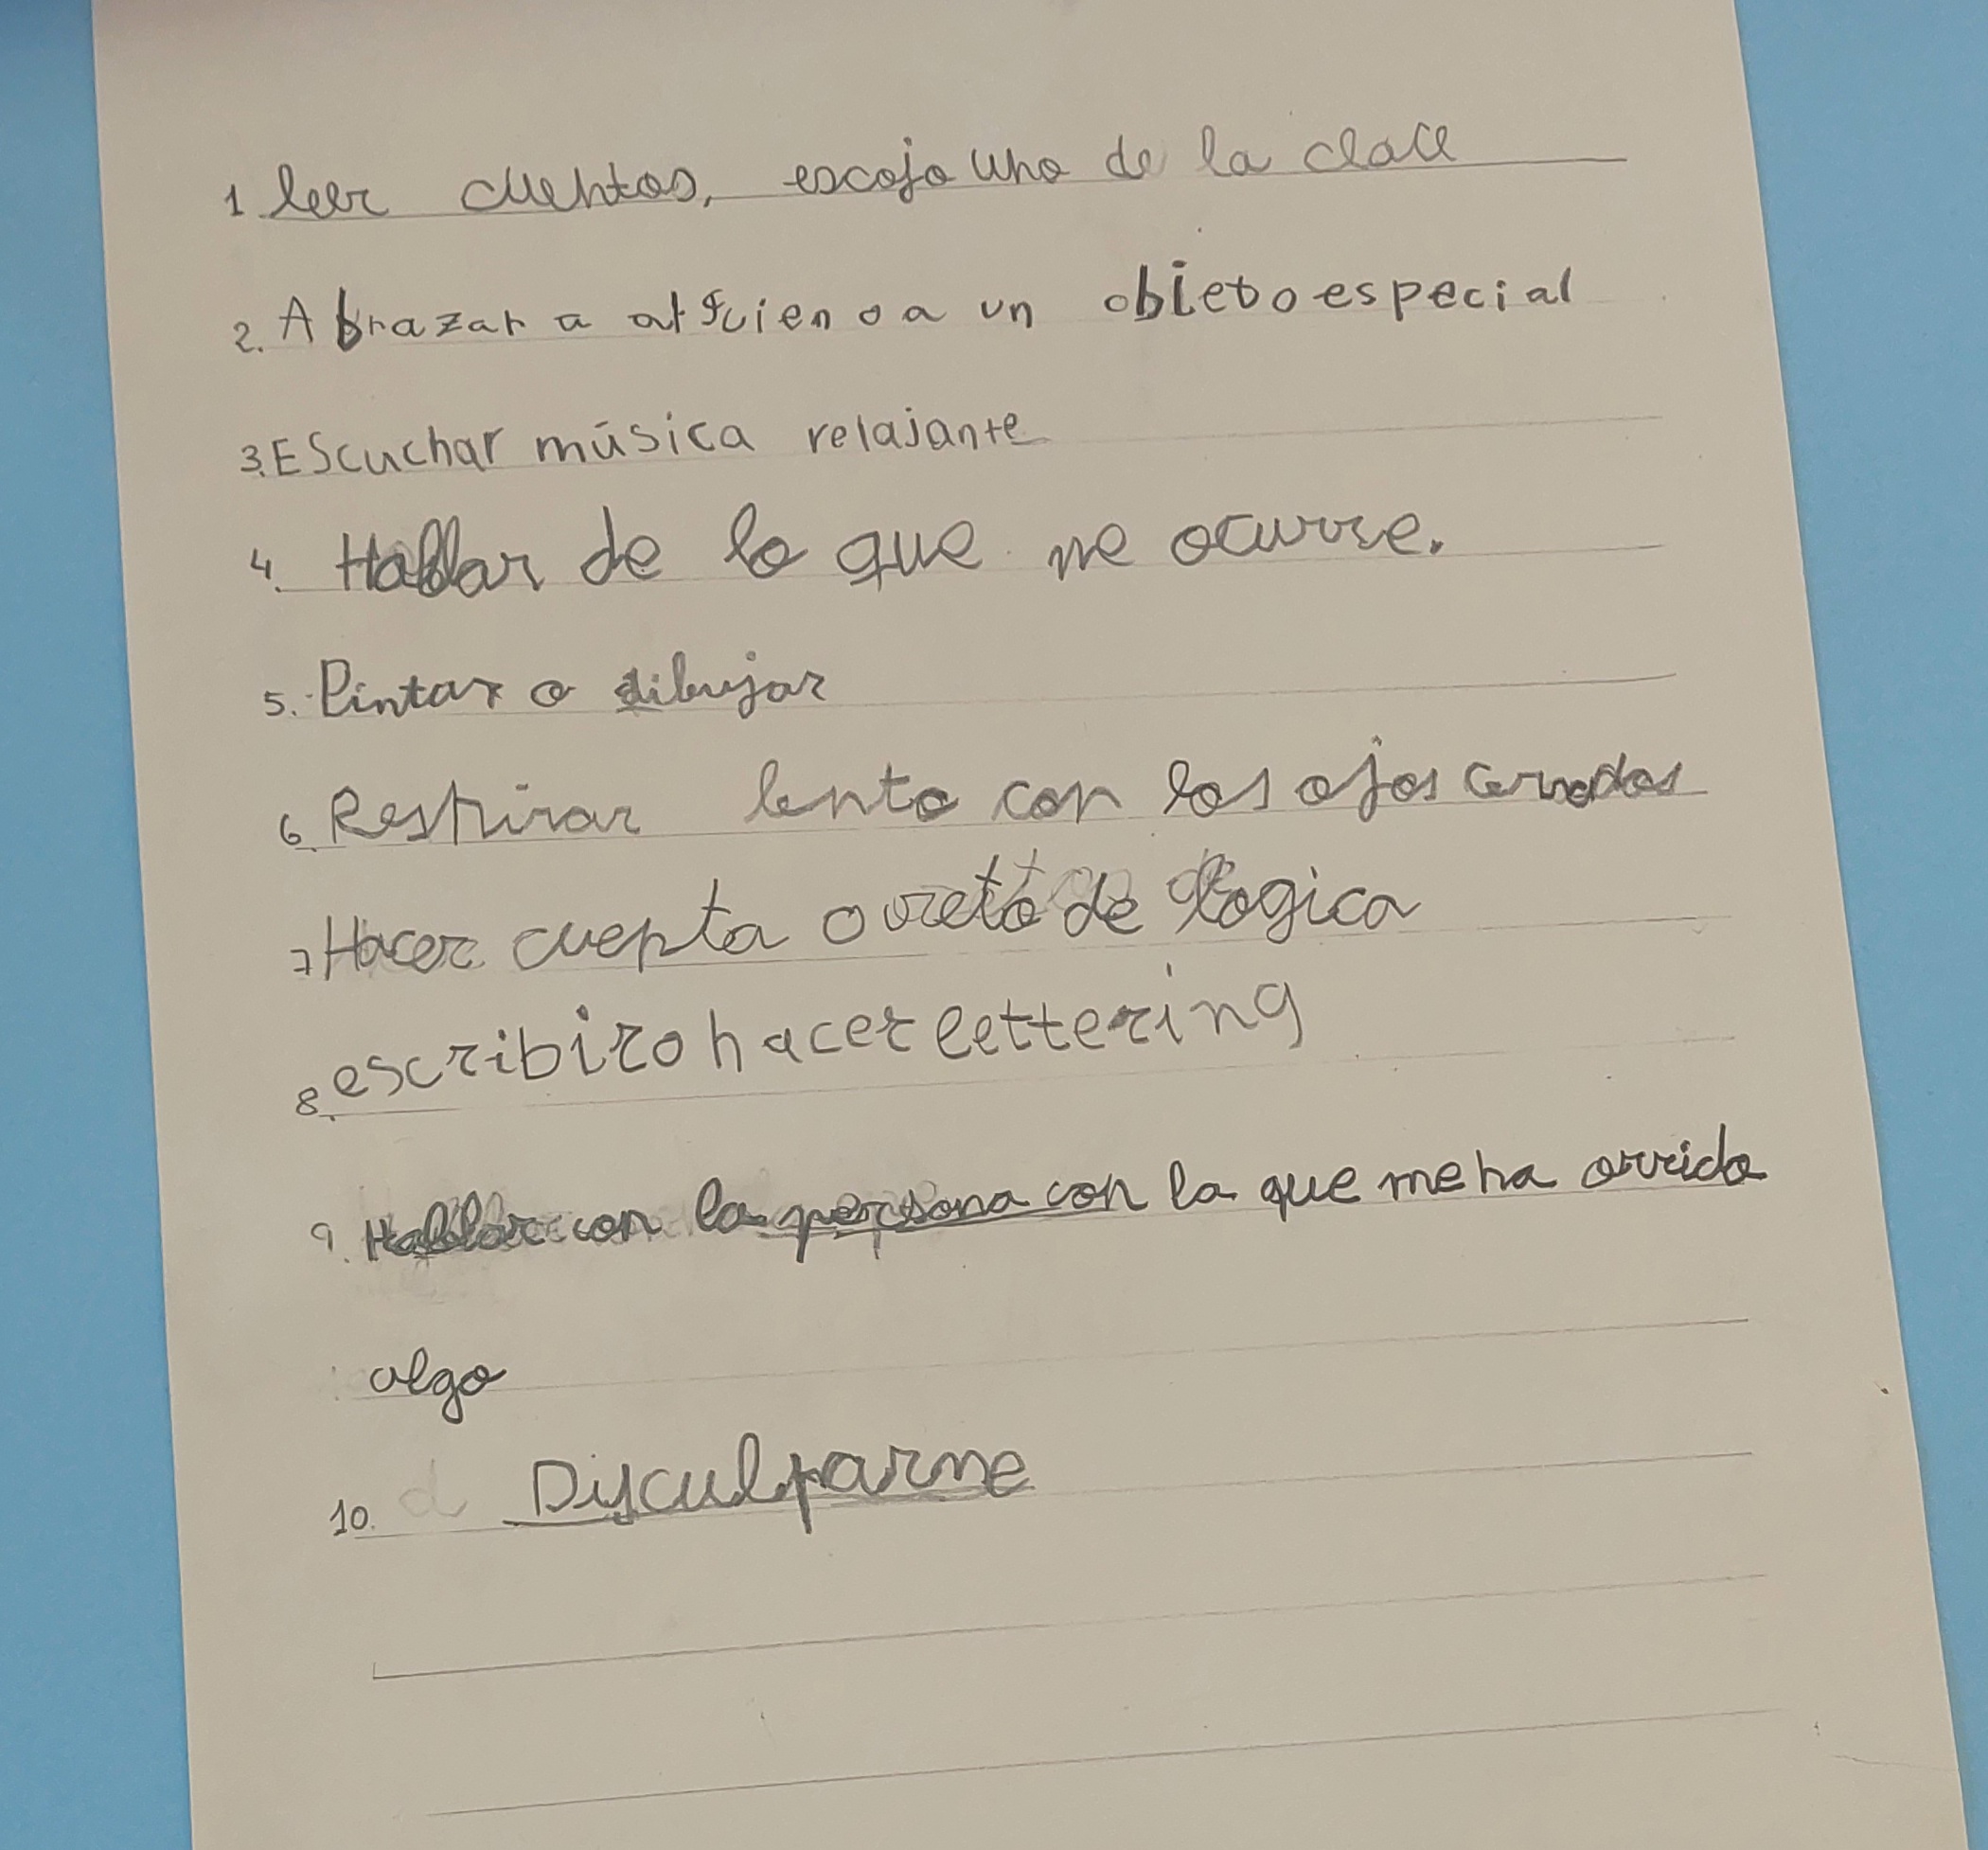 1 leer cuentos, escojo uno de la clase
2. Abrazar a alguien o a un objeto especial
3. Escuchar música relajante
4. Hablar de lo que me ocurre.
5. Pintar o dibujar
6. Respirar lento con los ojos cerrados
7 Hacer cuenta o reto de logica
8. escribir o hacer lettering
9. Hablar con la persona con la que me ha
algo
10. Disculparme